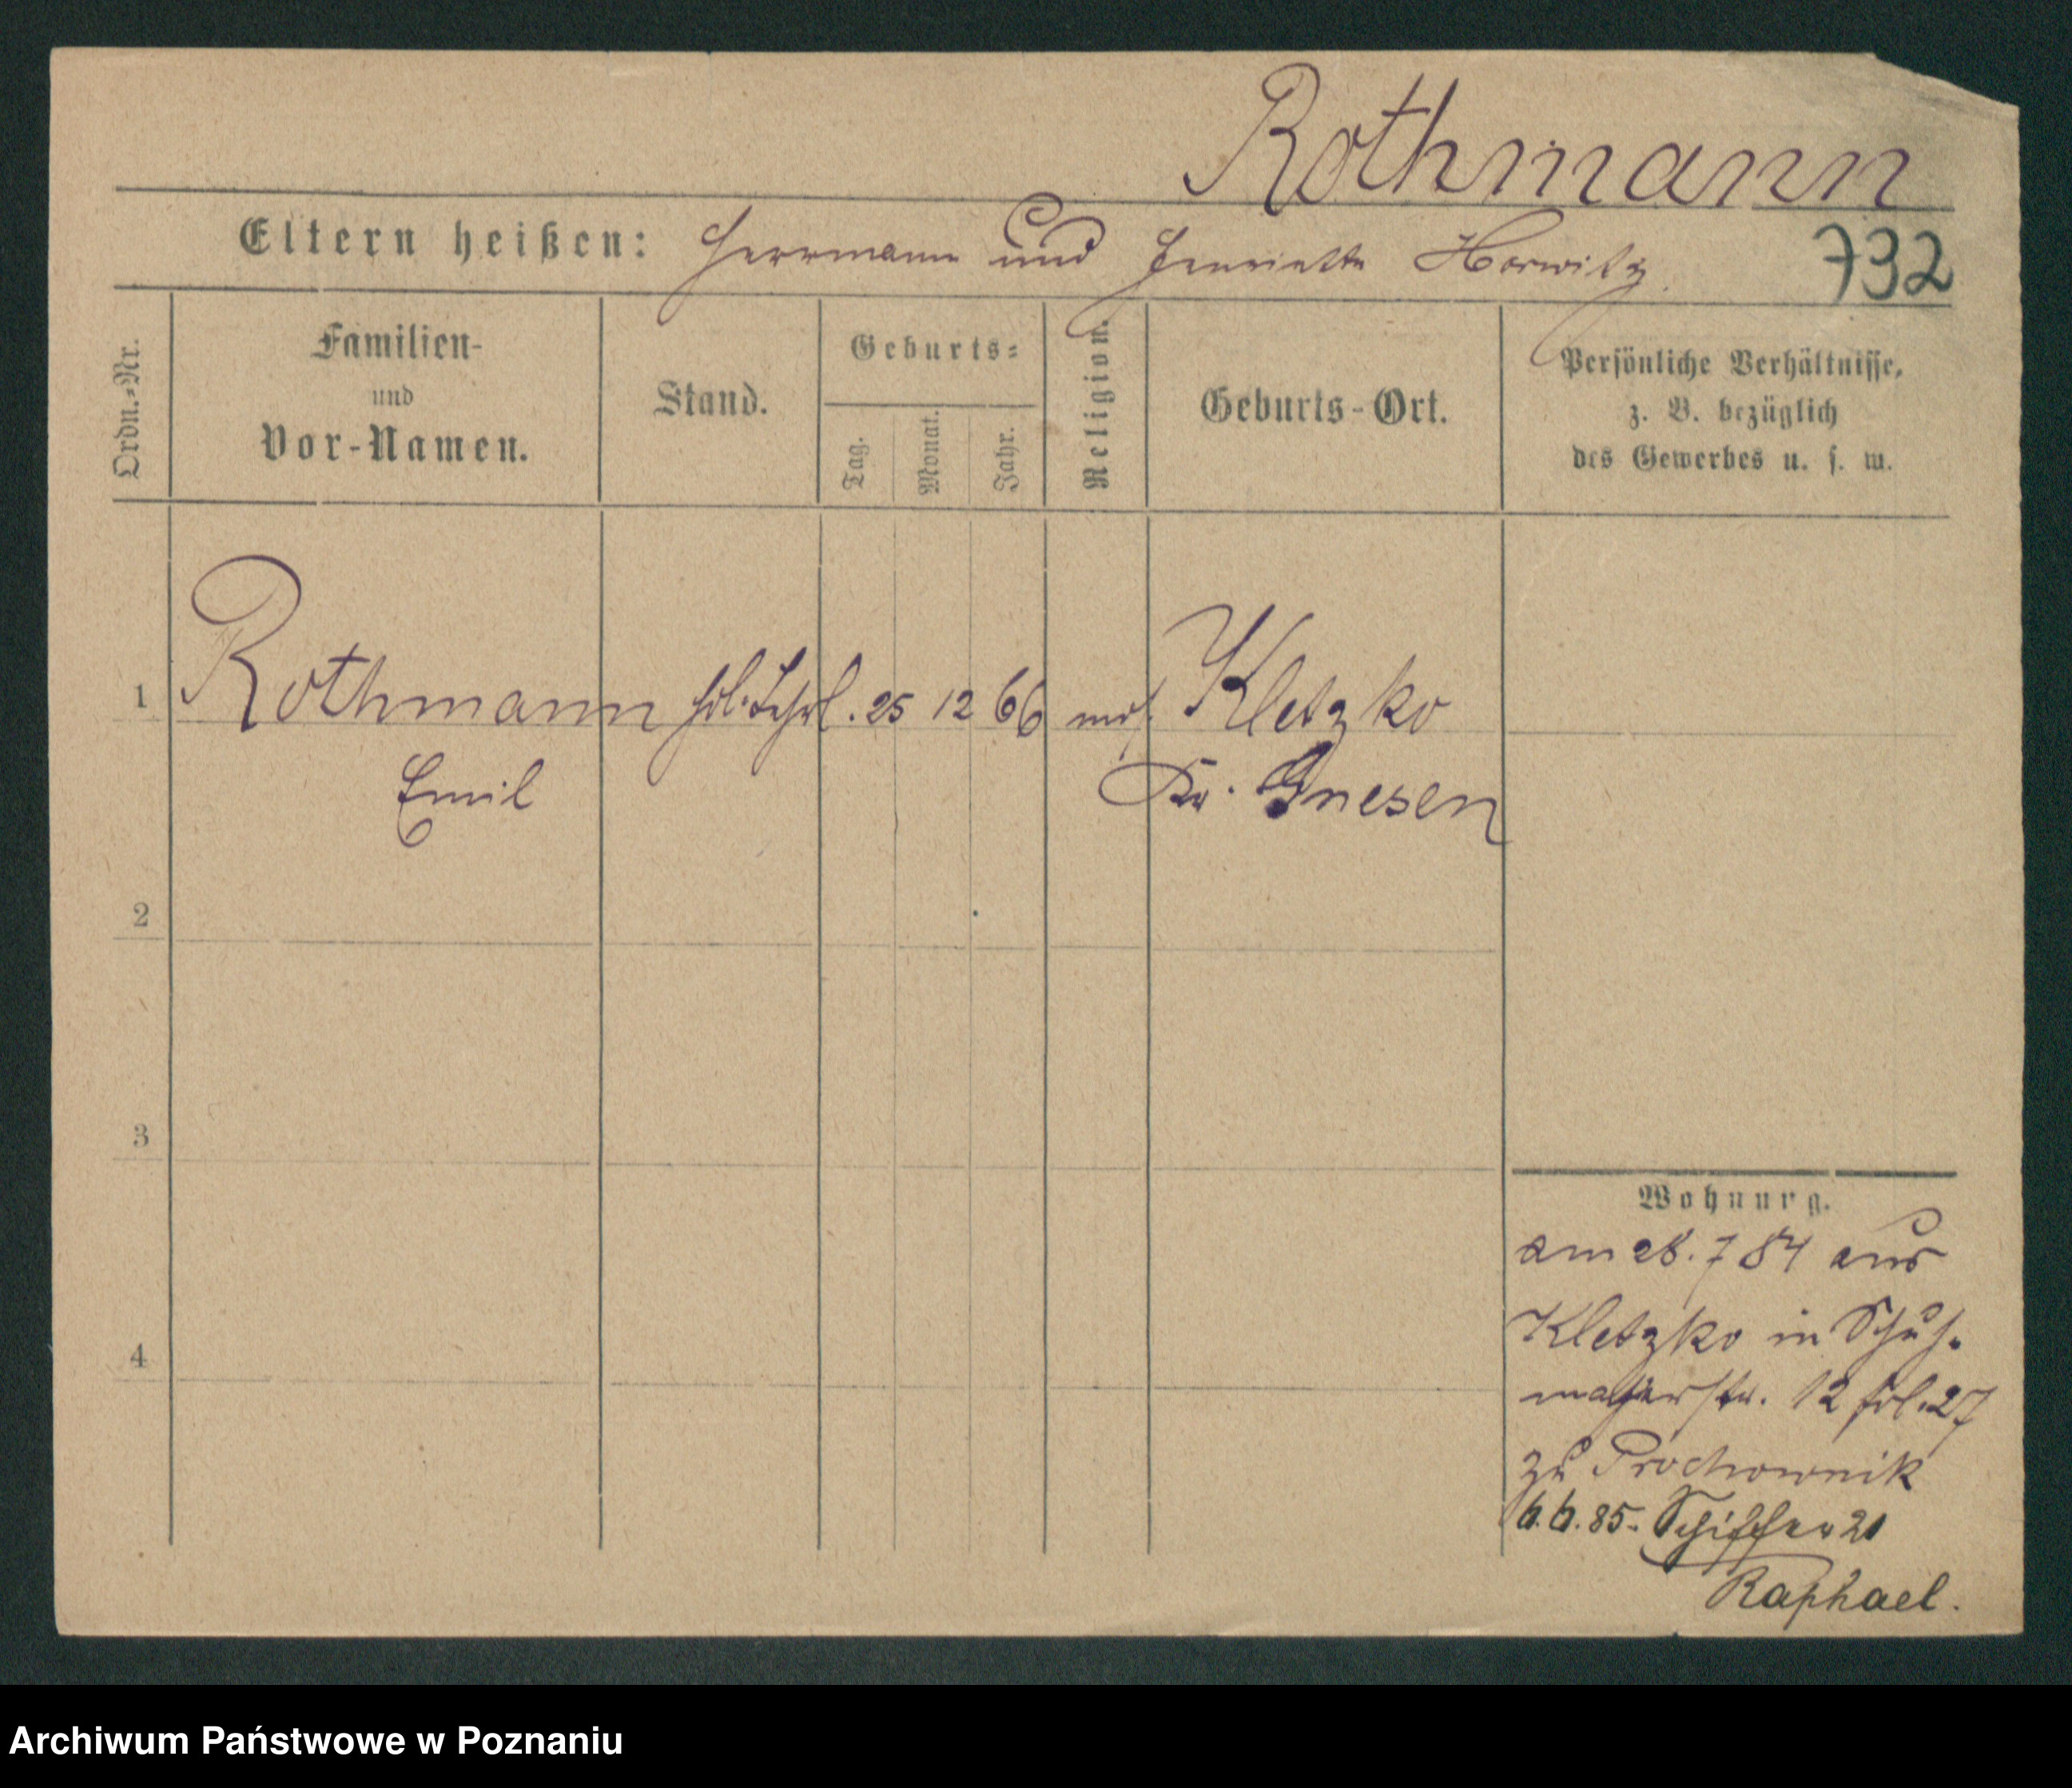 Rothmann
Eltern heißen: Herrmann und Henriette Horwitz.
732
Ordn.-Nr.
Familien-
und
Vor-Namen.
Stand.
Geburts-
Tag.
Monat.
Jahr.
Religion.
Geburts-Ort.
Persönliche Verhältnisse,
z. B. bezüglich
des Gewerbes u. s. w.
1 Rothmann Hdl. Lehrl. 25 12 66 mos. Kletzko
Emil Kr. Gnesen
2
3
4
Wohnung.
am 28. 7 84 aus
Kletzko in Schuh-
macherstr. 12 fol. 27
zu Prochownik
6.6.85. Schiffer 21
Raphael.
Archiwum Państwowe w Poznaniu